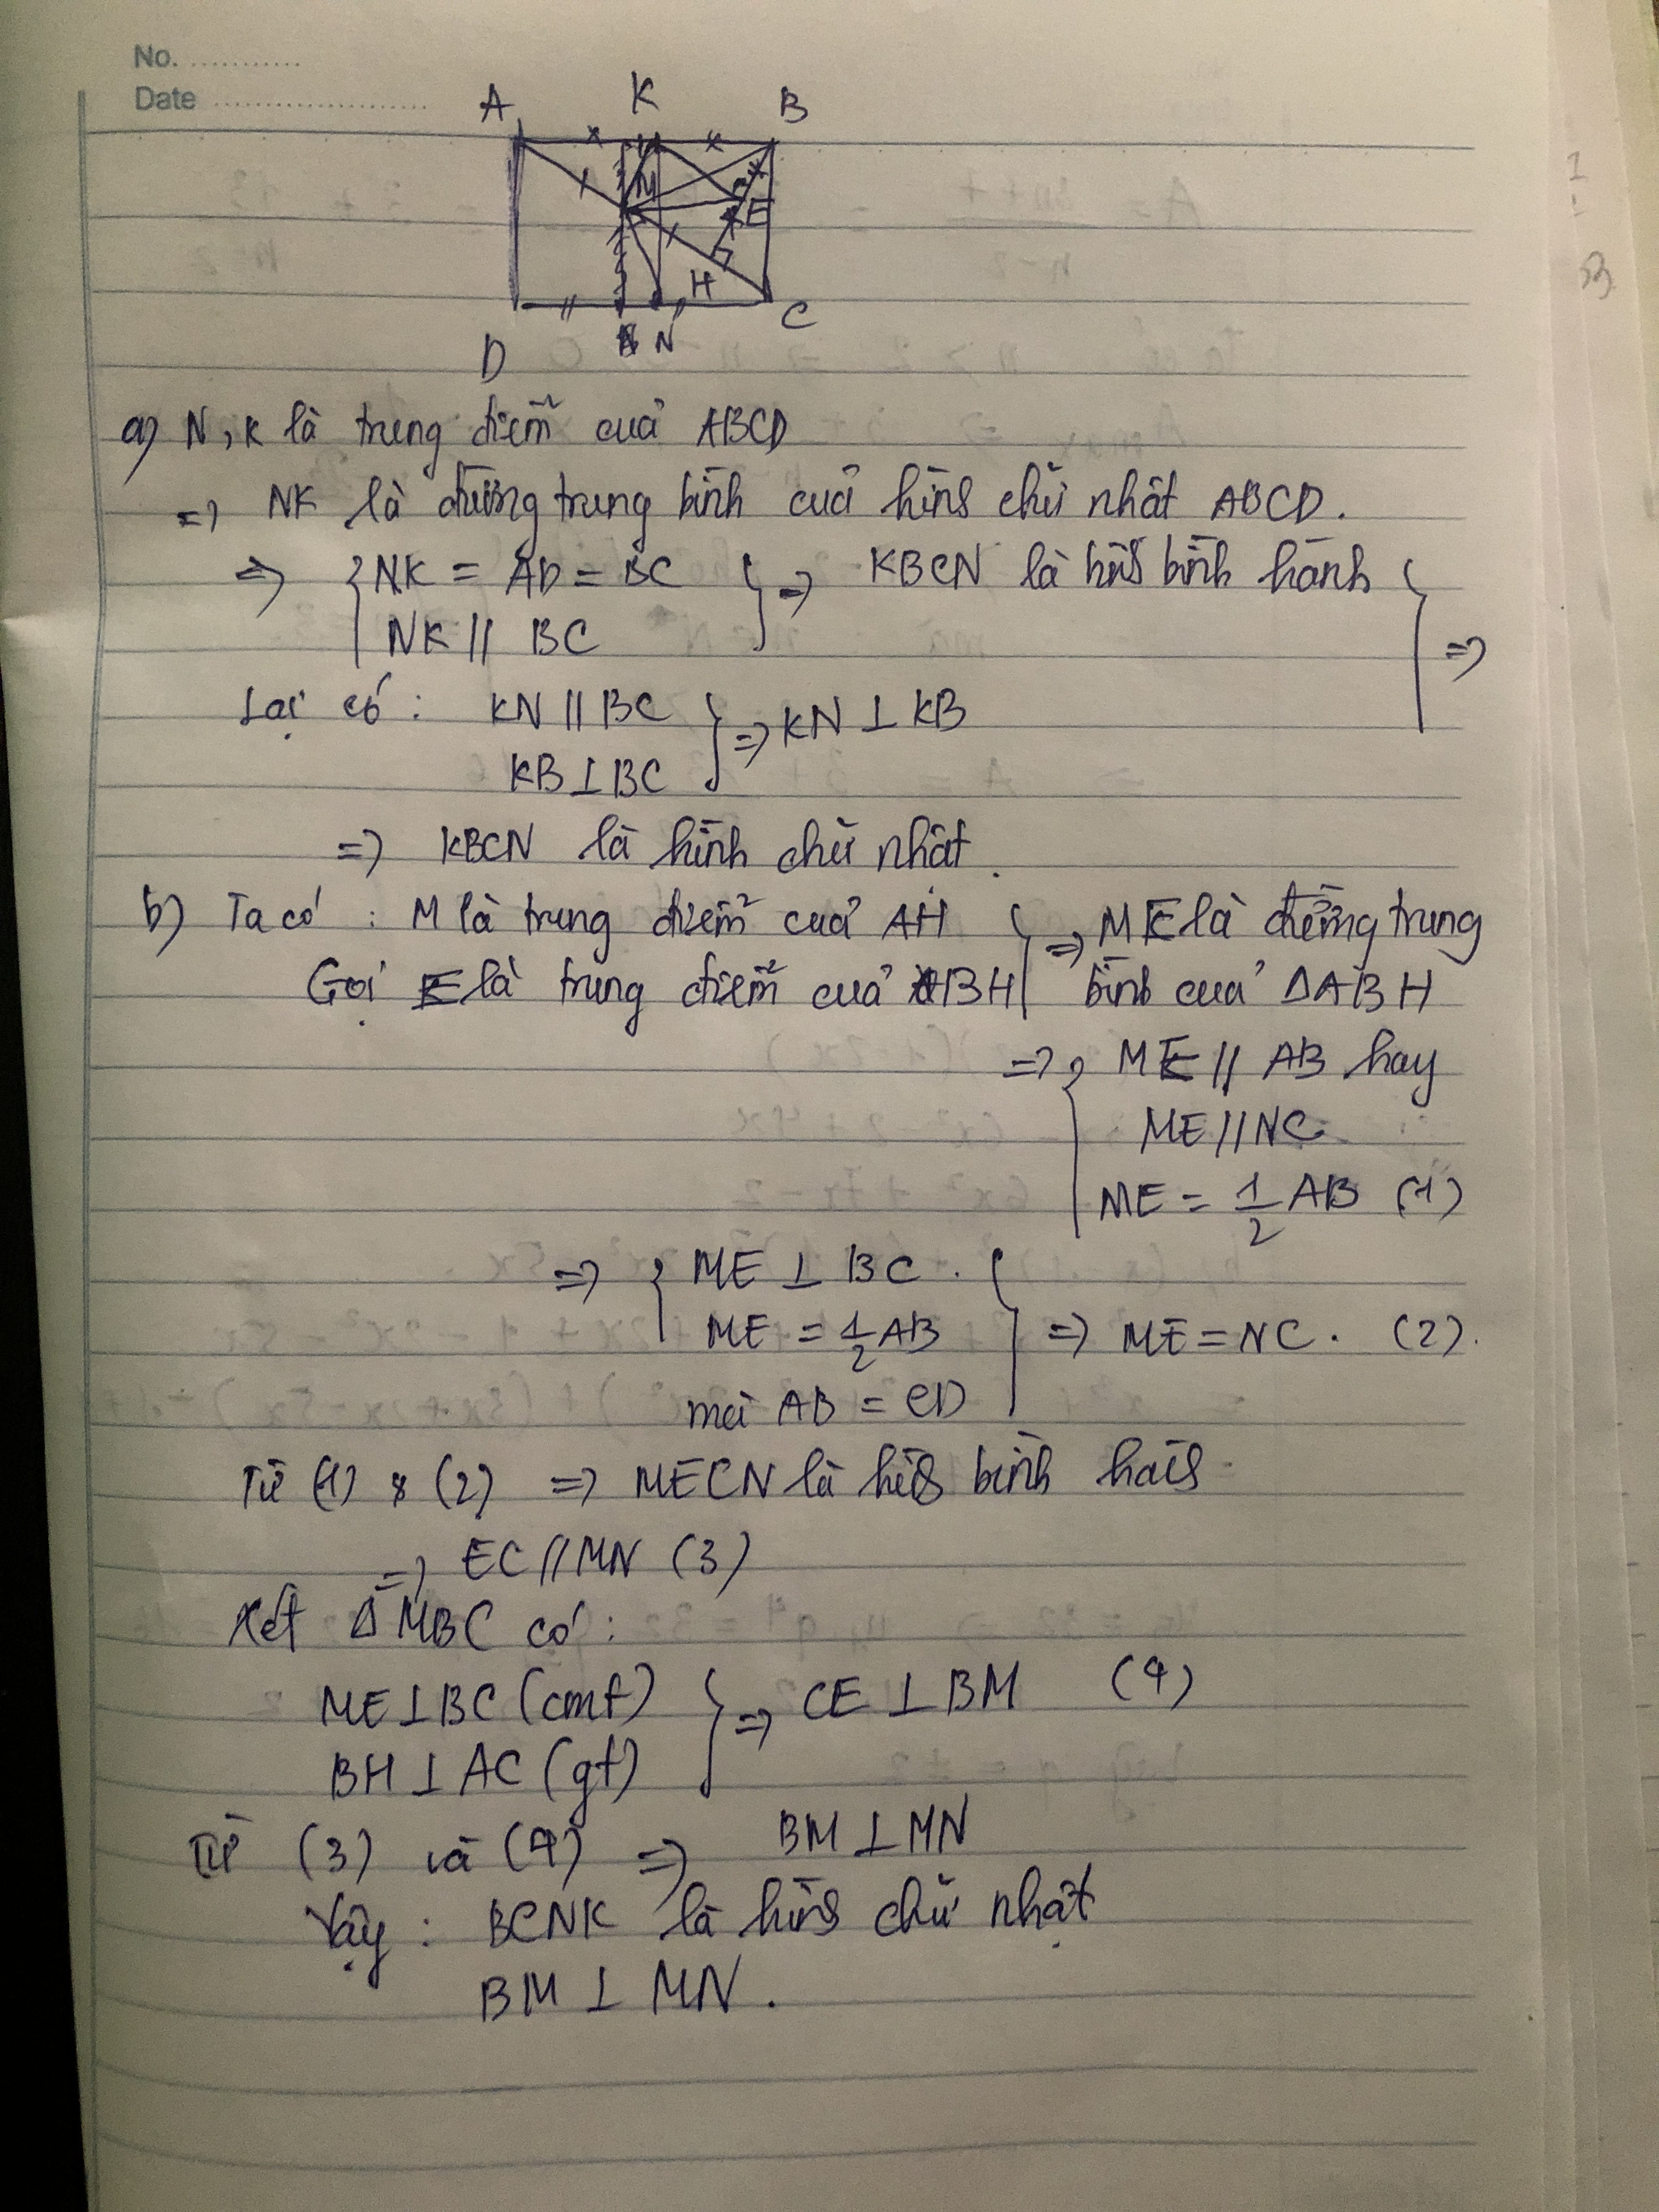 No. ...........
Date .....................
A K B
M
E
H
D N C
a) N, K là trung điểm của ABCD
=> NK là đường trung bình của hình chữ nhật ABCD.
=> { NK = AD = BC } => KBCN là hình bình hành }
NK // BC =>
Lại có : KN // BC } => KN ⊥ KB
KB ⊥ BC
=> KBCN là hình chữ nhật.
b) Ta có : M là trung điểm của AH } => ME là đường trung
Gọi E là trung điểm của BH bình của ΔABH
=> { ME // AB hay
ME // NC
ME = 1/2 AB (1)
=> { ME ⊥ BC . }
ME = 1/2 AB => ME = NC . (2).
mà AB = CD
Từ (1) & (2) => MECN là hình bình hành
=> EC // MN (3)
Xét ΔMBC có :
ME ⊥ BC (cmt) } => CE ⊥ BM (4)
BH ⊥ AC (gt)
Từ (3) và (4) => BM ⊥ MN
Vậy : BCNK là hình chữ nhật
BM ⊥ MN .